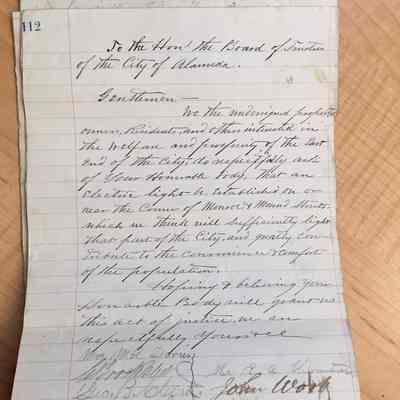 112
To the Hon' the Board of Trustees
of the City of Alameda.
Gentlemen—
We the undersigned property
owners, Residents, and others interested in
the Welfare and prosperity of the East
end of the City, do respectfully ask
of Your Honorable body, that an
Electric light be established on or
near the Corner of Monroe & Mound Streets
which we think will sufficiently light
that part of the City, and greatly con-
tribute to the convenience & comfort
of the population.
Hoping & believing your
Honorable Body will grant us
this act of justice we are
respectfully yours &c
John Wood